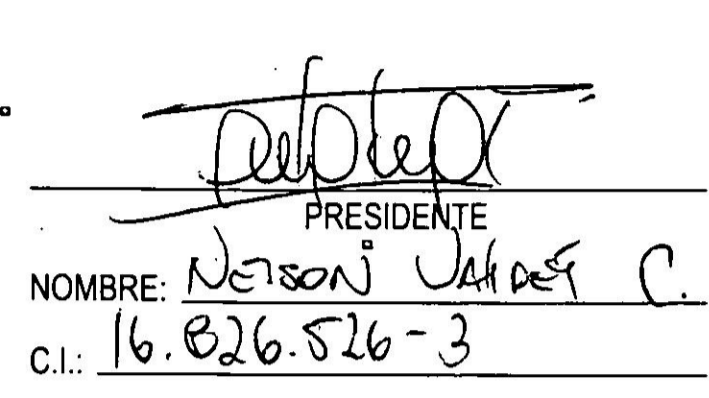 PRESIDENTE
NOMBRE: Nelson Valdés C.
C.I.: 16.826.526-3